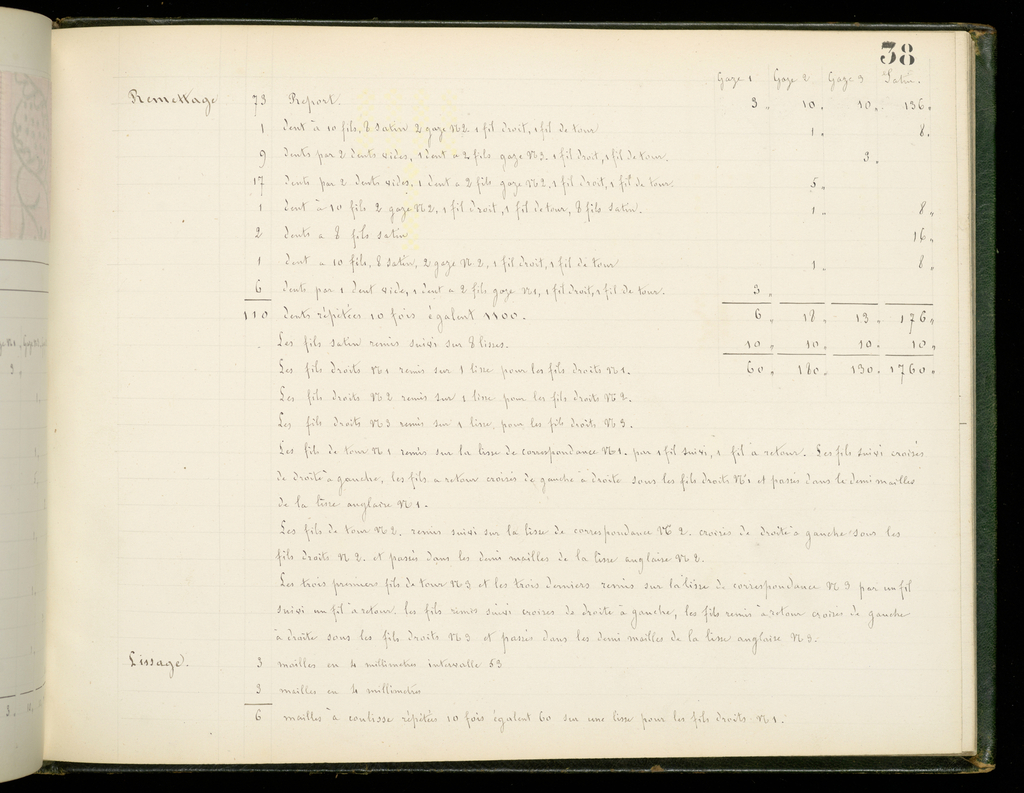 38
Gaze 1 Gaze 2 Gaze 3 Satin.
Remettage 73 Report. 3 „ 10 „ 10 „ 136 „
1 dent à 10 fils, 8 satin 2 gaze N2. 1 fil droit, 1 fil de tour 1 „ 8 „
9 dents par 2 dents vides, 1 dent a 2 fils gaze N3. 1 fil droit, 1 fil de tour. 3 „
17 dents par 2 dents vides. 1 dent a 2 fils gaze N2. 1 fil droit, 1 fil de tour. 5 „
1 dent à 10 fils 2 gaze N2. 1 fil droit, 1 fil de tour, 8 fils satin. 1 „ 8 „
2 dents a 8 fils satin 16 „
1 dent a 10 fils, 8 satin, 2 gaze N 2, 1 fil droit, 1 fil de tour 1 „ 8 „
6 dents par 1 dent vide, 1 dent a 2 fils gaze N1, 1 fil droit, 1 fil de tour. 3 „
110 dents répétées 10 fois égalent 1100. 6 „ 18 „ 13 „ 176 „
Les fils satin remis suivi sur 8 lisses. 10 „ 10 „ 10 „ 10 „
Les fils droits N1 remis sur 1 lisse pour les fils droits N1. 60 „ 180 „ 130 „ 1760 „
Les fils droits N 2 remis sur 1 lisse pour les fils droits N 2.
Les fils droits N 3 remis sur 1 lisse pour les fils droits N 3.
Les fils de tour N 1 remis sur la lisse de correspondance N 1. par 1 fil suivi, 1 fil à retour. Les fils suivi croisés
de droite à gauche, les fils a retour croisés de gauche à droite sous les fils droits N 1 et passés dans le demi mailles
de la lisse anglaise N 1.
Les fils de tour N 2. remis suivi sur la lisse de correspondance N 2. croisés de droite à gauche sous les
fils droits N 2. et passés dans les demi mailles de la lisse anglaise N 2.
Les trois premiers fils de tour N 3 et les trois derniers remis sur la lisse de correspondance N 3 par un fil
suivi un fil à retour. les fils remis suivi croisés de droite à gauche, les fils remis à retour croisés de gauche
à droite sous les fils droits N 3 et passés dans les demi mailles de la lisse anglaise N 3.
Lissage. 3 mailles en 4 millimetres intervalle 53
3 mailles en 4 millimetres
6 mailles à coulisse répétées 10 fois égalent 60 sur une lisse pour les fils droits N 1.